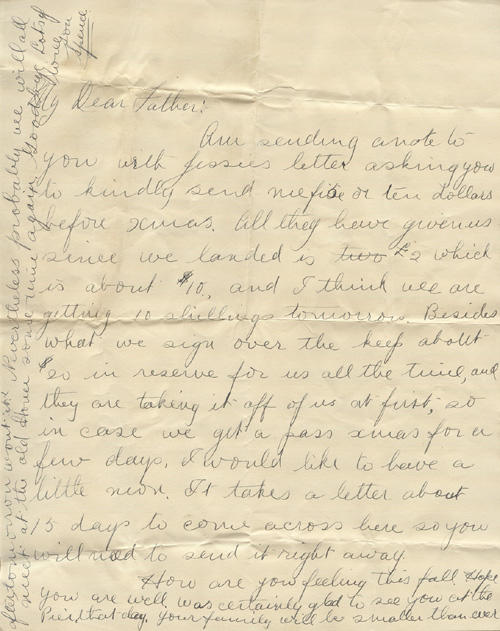 My Dear Father:
Am sending a note to
you with Jessies letter asking you
to kindly send me five or ten dollars
before xmas. All they have given us
since we landed is two £2 which
is about $10, and I think we are
getting 10 shillings tomorrow. Besides
what we sign over the keep about
$20 in reserve for us all the time, and
they are taking it off of us at first, so
in case we get a pass xmas for a
few days, I would like to have a
little mon. It takes a letter about
15 days to come across here so you
will need to send it right away.
How are you feeling this fall Hope
you are well. was certainly glad to see you at the
Pier that day. Your family will be smaller than ever
after on won't it. Nevertheless probably we will all
meet at the old Home some time again. Goodbye Lots of
love
you
spend